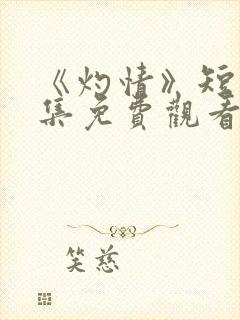 《灼情》短
集免費觀看
笑慈